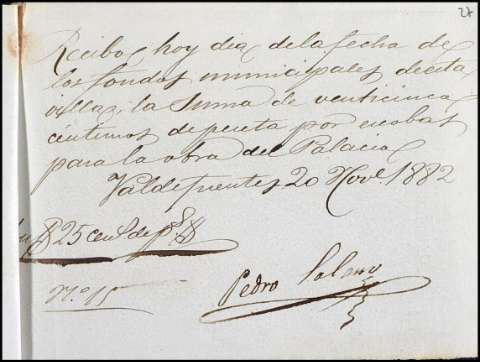 27
Recibo hoy dia de la fecha de
los fondos municipales de esta
villa, la Suma de venticinco
centimos de peseta por escobas
para la obra del Palacio
Valdefuentes 20 Nove. 1882
Son # 25 cent. de pta. #
Nº 15
Pedro Solano